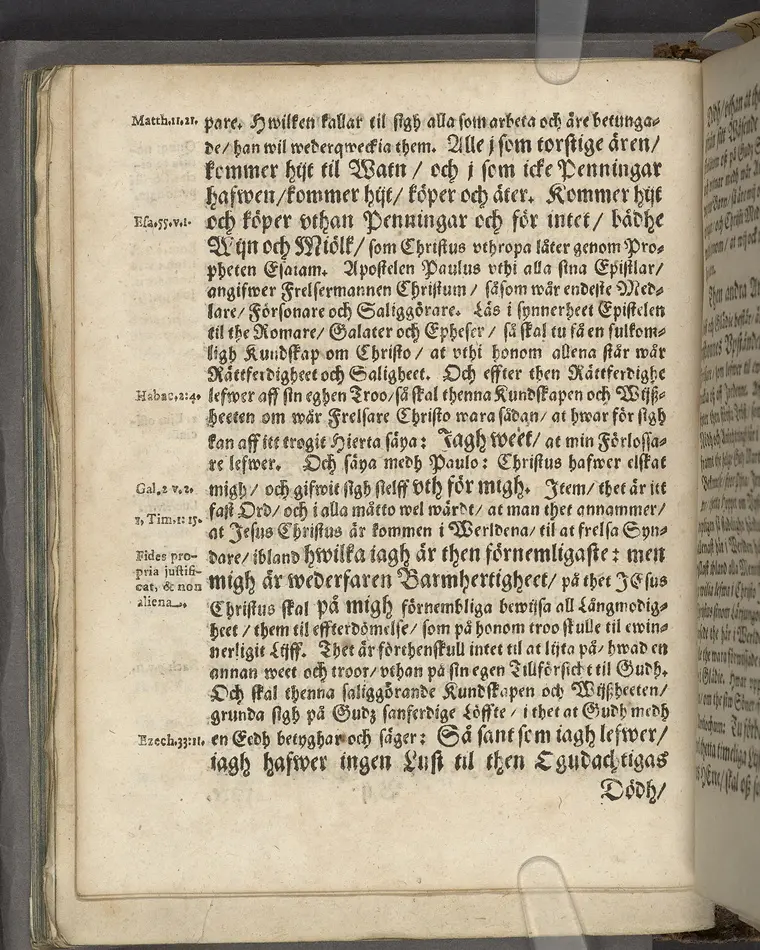 Matth.11.21. pare. Hwilken kallar til sigh alla som arbeta och äre betunga-
de/ han wil wederqweckia them. Alle j som torstige ären/
kommer hijt til Watn / och j som icke Penningar
hafwen/kommer hijt/ köper och äter. Kommer hijt
Esa.55.v.1. och köper vthan Penningar och för intet / bådhe
Wijn och Miölk/ som Christus vthropa låter genom Pro-
pheten Esaiam. Apostelen Paulus vthi alla sina Epistlar/
angifwer Frelsermannen Christum / såsom wår endeste Med-
lare/ Försonare och Saliggörare. Läs i synnerheet Epistelen
til the Romare/ Galater och Epheser / så skal tu få en fulkom-
ligh Kundskap om Christo / at vthi honom allena står wår
Rättferdigheet och Saligheet. Och effter then Rättferdighe
Habac.2:4. lefwer aff sin eghen Troo/ så skal thenna Kundskapen och Wijß-
heeten om wår Frelsare Christo wara sådan/ at hwar för sigh
kan aff itt trogit Hierta säya: Jagh weet/ at min Förlossa-
re lefwer. Och säya medh Paulo: Christus hafwer elskat
Gal.2 v.2. migh/ och gifwit sigh sielff vth för migh. Item/ thet är itt
fast Ord/ och i alla måtto wel wärdt/ at man thet annammer/
1, Tim.1: 15. at Jesus Christus är kommen i Werldena/ til at frelsa Syn-
Fides pro- dare/ ibland hwilka iagh är then förnemligaste: men
pria justifi- migh är wederfaren Barmhertigheet/ på thet JEsus
cat, & non
aliena. Christus skal på migh förnembliga bewijsa all Långmodig-
heet / them til effterdömelse/ som på honom troo skulle til ewin-
nerligit Lijff. Thet är förthenskull intet til at lijta på/ hwad en
annan weet och troor/ vthan på sin egen Tillförsicht til Gudh.
Och skal thenna saliggörande Kundskapen och Wijßheeten/
grunda sigh på Gudz sanferdige Löffte / i thet at Gudh medh
Ezech.33:11. en Eedh betyghar och säger: Så sant som iagh lefwer/
iagh hafwer ingen Lust til then Ogudachtigas
Dödh/